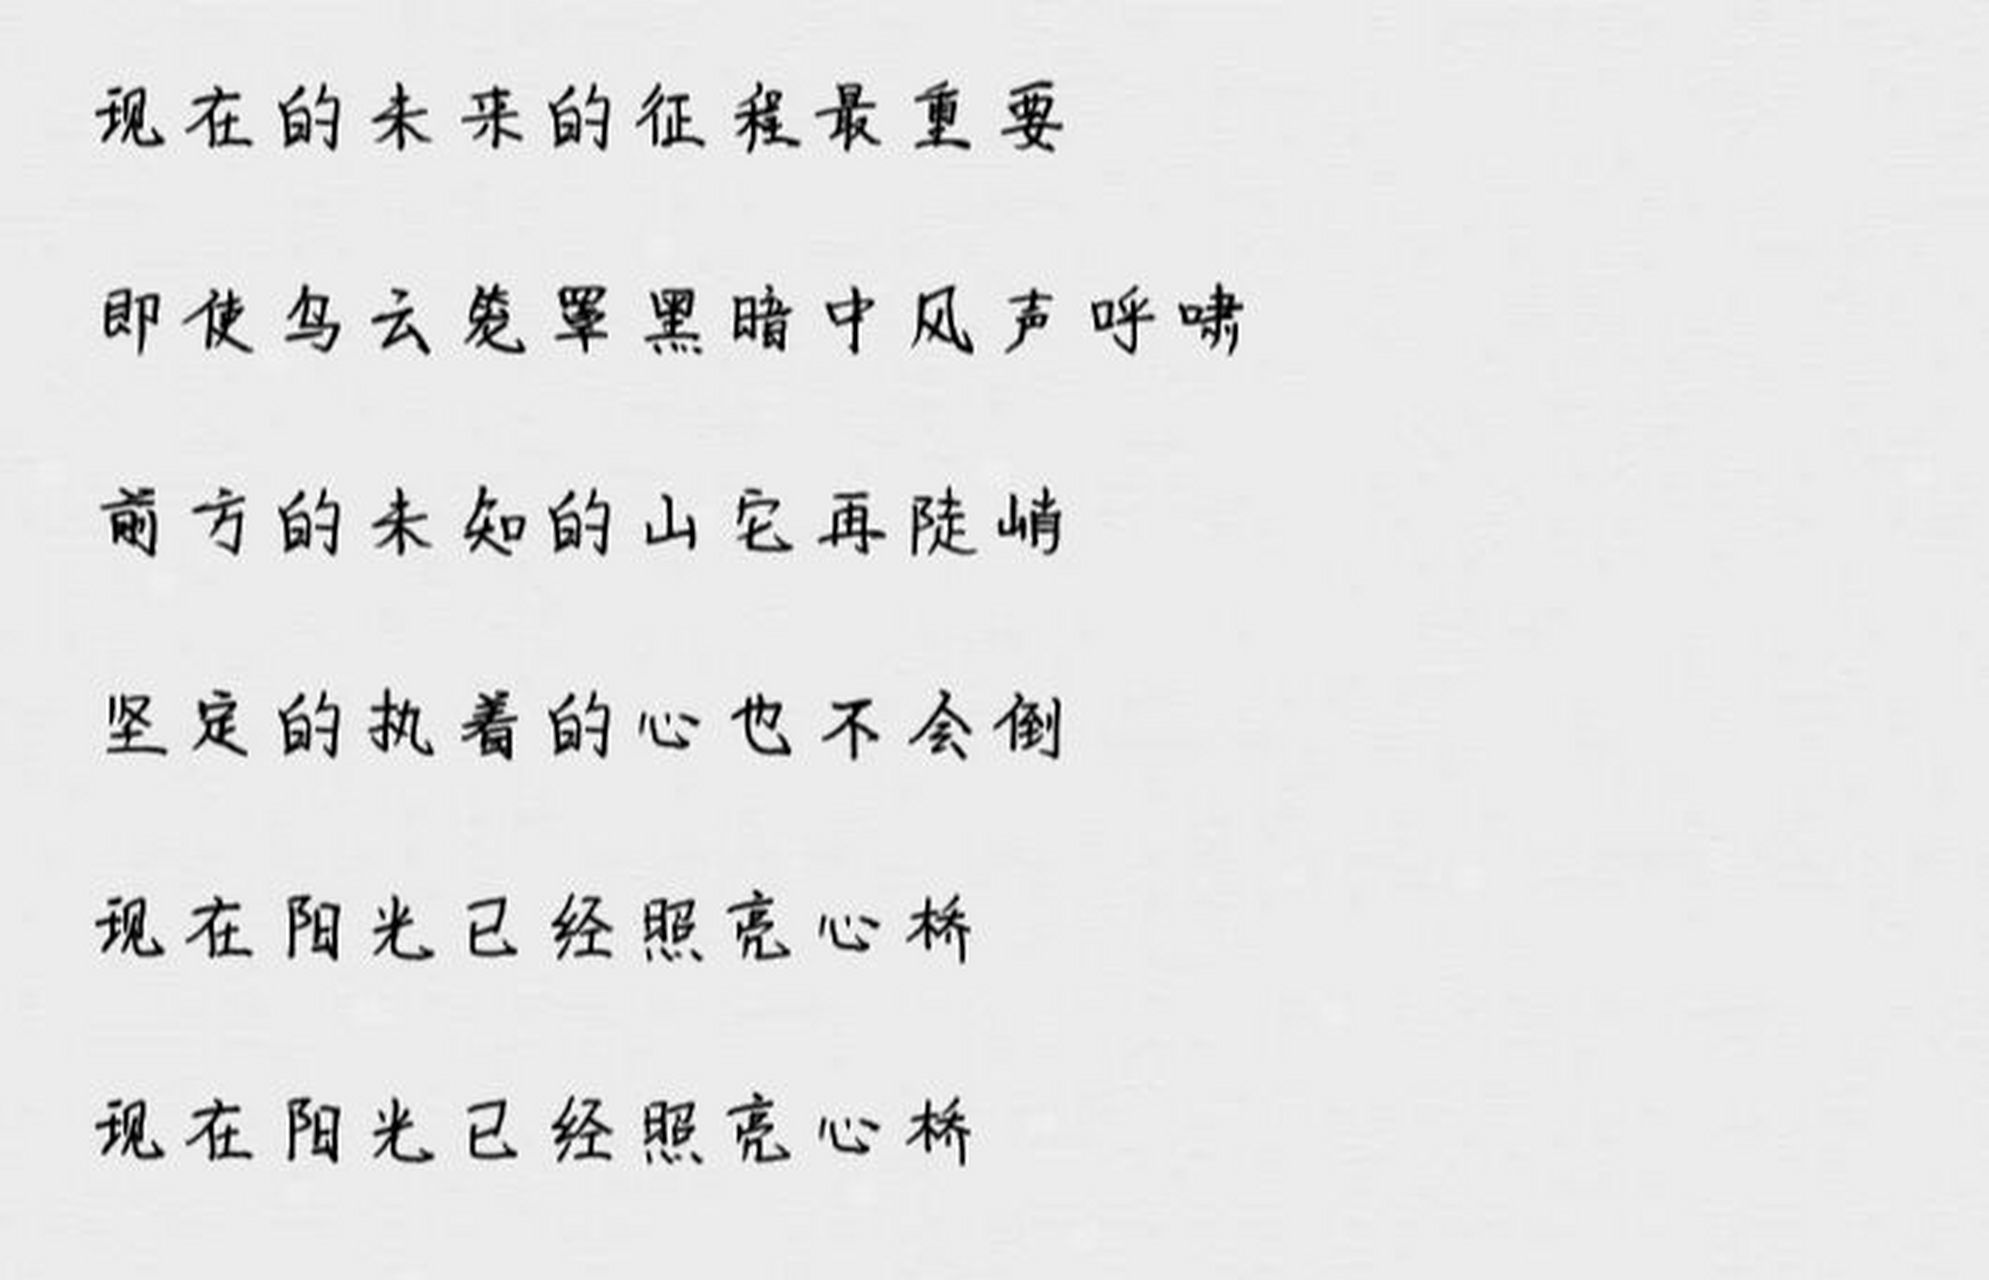 现在的未来的征程最重要
即使乌云笼罩黑暗中风声呼啸
前方的未知的山它再陡峭
坚定的执着的心也不会倒
现在阳光已经照亮心桥
现在阳光已经照亮心桥